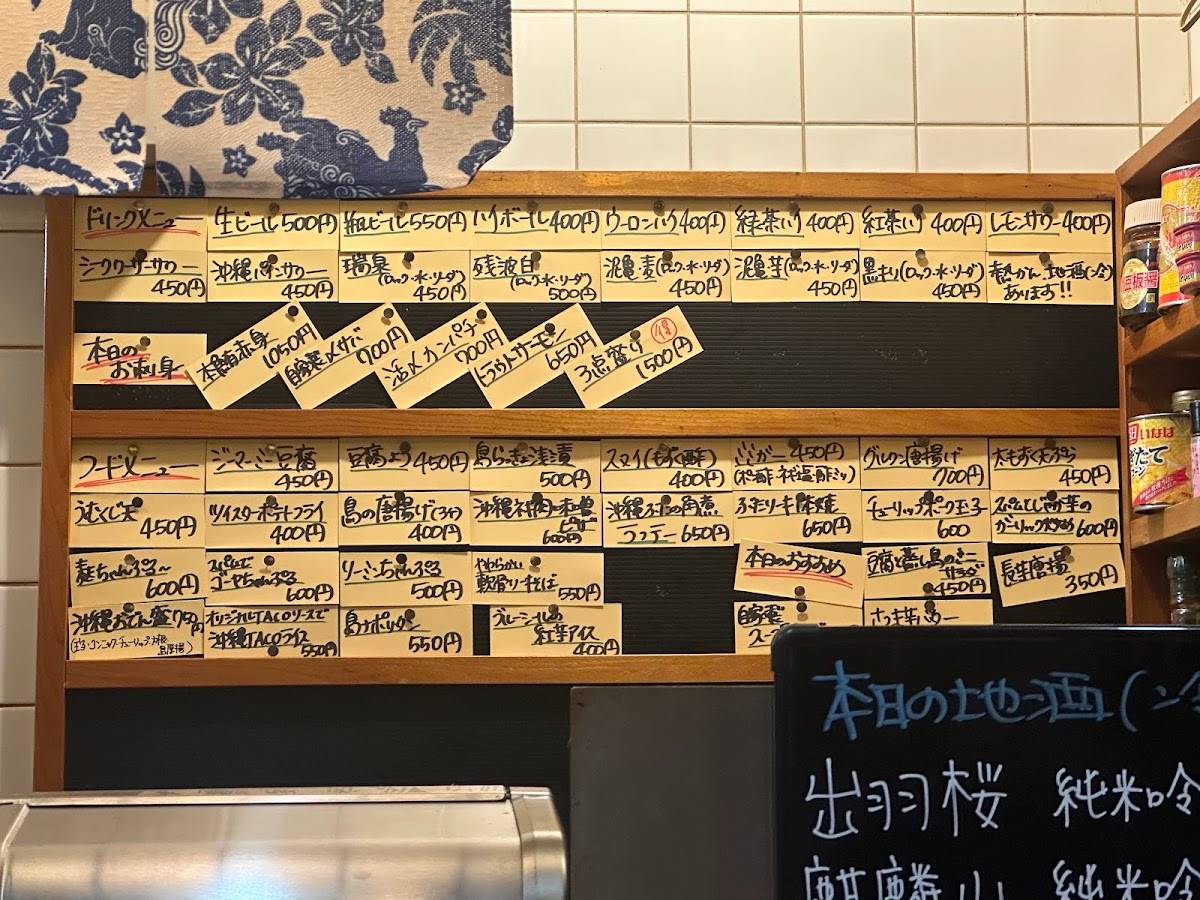 ドリンクメニュー
生ビール 500円
瓶ビール 550円
ハイボール 400円
ウーロンハイ 400円
緑茶ハイ 400円
紅茶ハイ 400円
レモンサワー 400円
シークワーサーサワー
450円
沖縄パインサワー
450円
瑞泉(ロック・水・ソーダ)
450円
残波白
(ロック・水・ソーダ)
500円
泥亀・麦(ロック・水・ソーダ)
450円
泥亀・芋(ロック・水・ソーダ)
450円
黒キリ(ロック・水・ソーダ)
450円
熱かん、地酒(冷)
あります!!
本日の
お刺身
本鮪赤身
1050円
自家製〆サバ
700円
活〆カンパチ
700円
トラウトサーモン
650円
3点盛り 得
1500円
フードメニュー
ジーマーミ豆腐
450円
豆腐よう 450円
島らっきょう浅漬
500円
スヌイ(もずく酢)
400円
ミミガー 450円
グルクン唐揚げ
700円
太もずく天ぷら
450円
うむくじ天
450円
ツイスターポテトフライ
400円
島の唐揚げ(3ヶ)
400円
600円
沖縄
ラフテー 600円
650円
チューリップポーク玉子
600
ガーリック炒め 600円
麩ちゃんぷる〜
600円
スパムで
ゴーヤちゃんぷる
600円
ソーミンちゃんぷる
500円
やわらかい
軟骨ソーキそば 550円
本日のおすすめ
450円
長芋唐揚
350円
沖縄おでん盛り 750円
オリジナルTACOソースで
沖縄TACOライス 550円
島ナポリタン
550円
ブルーシールの
紅芋アイス
400円
自家製
本日の地酒(冷
出羽桜 純米吟
麒麟山 純米吟